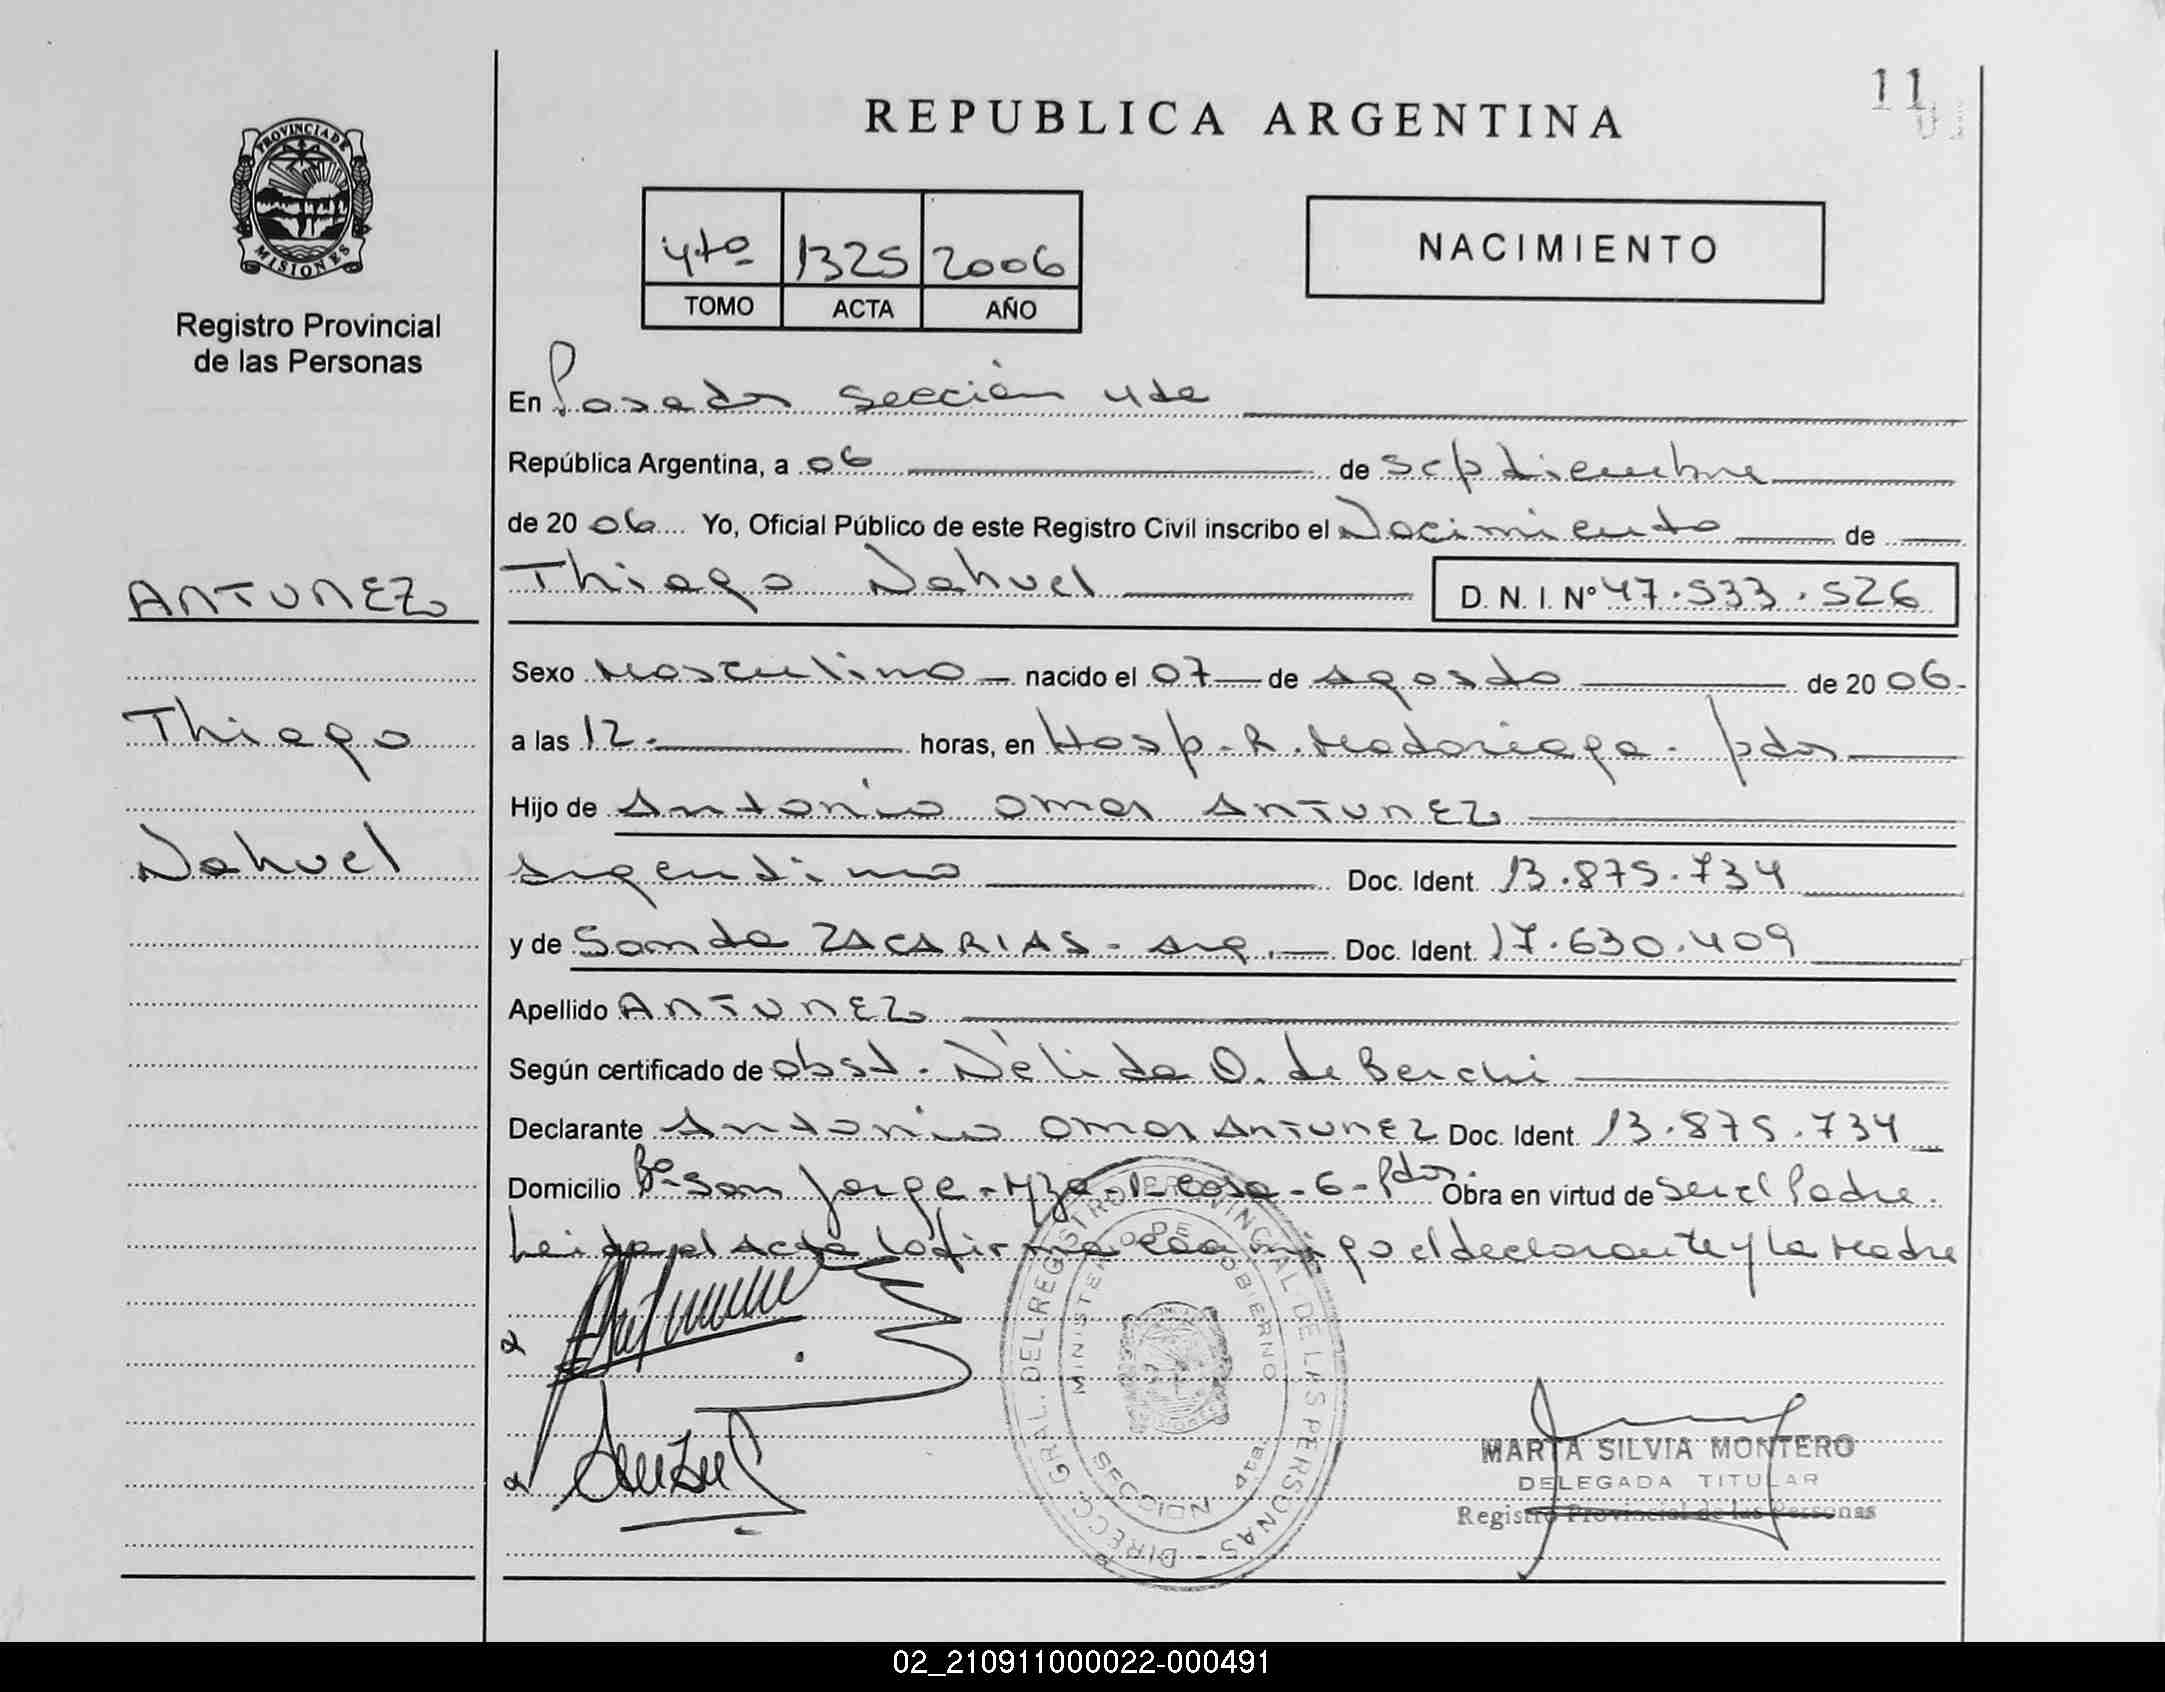 REPUBLICA ARGENTINA
11
PROVINCIA DE
MISIONES
Registro Provincial
de las Personas
4to 1325 2006
TOMO ACTA AÑO
NACIMIENTO
En Posadas Sección 4ta
República Argentina, a 06 de Septiembre
de 20 06 Yo, Oficial Público de este Registro Civil inscribo el Nacimiento de
Thiago Nahuel D. N. I. Nº 47.533.526
ANTUNEZ
Thiago
Nahuel
Sexo Masculino nacido el 07 de Agosto de 20 06-
a las 12. horas, en Hosp. R. Madariaga - pdas
Hijo de Antonio Omar ANTUNEZ
Argentino Doc. Ident. 13.875.734
y de ZACARIAS - Arg. Doc. Ident. 17.630.409
Apellido ANTUNEZ
Según certificado de obst. Nélida O. de Berchi
Declarante Antonio Omar ANTUNEZ Doc. Ident. 13.875.734
Domicilio Bº San Jorge - Mza - 1- casa - 6 - Pdas. Obra en virtud de ser el Padre.
Leida el Acta la firma conmigo el declarante y la Madre
DIRECC. GRAL. DEL REGISTRO PROVINCIAL DE LAS PERSONAS -
MINISTERIO DE GOBIERNO
MARTA SILVIA MONTERO
DELEGADA TITULAR
Registro Provincial de las Personas
02_210911000022-000491